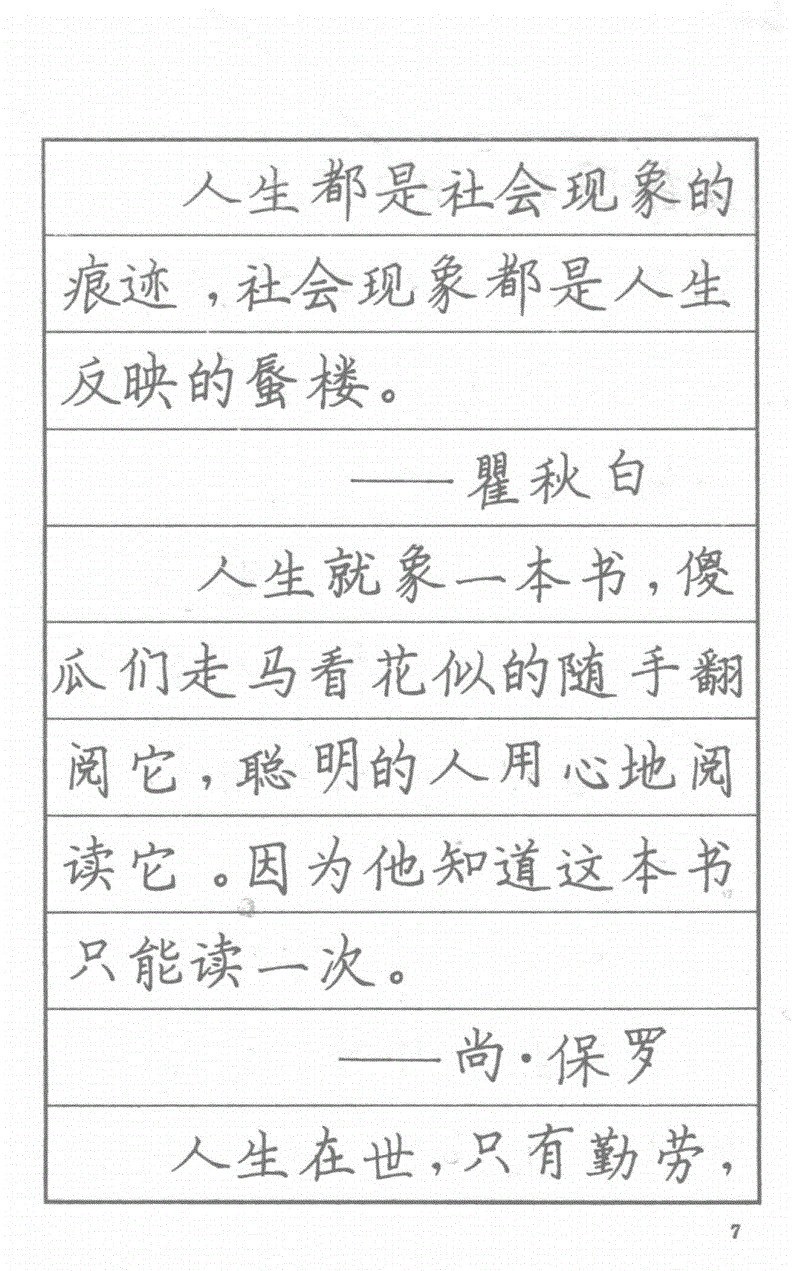 人生都是社会现象的
痕迹，社会现象都是人生
反映的蜃楼。
——瞿秋白
人生就象一本书，傻
瓜们走马看花似的随手翻
阅它，聪明的人用心地阅
读它。因为他知道这本书
只能读一次。
——尚·保罗
人生在世，只有勤劳，
7